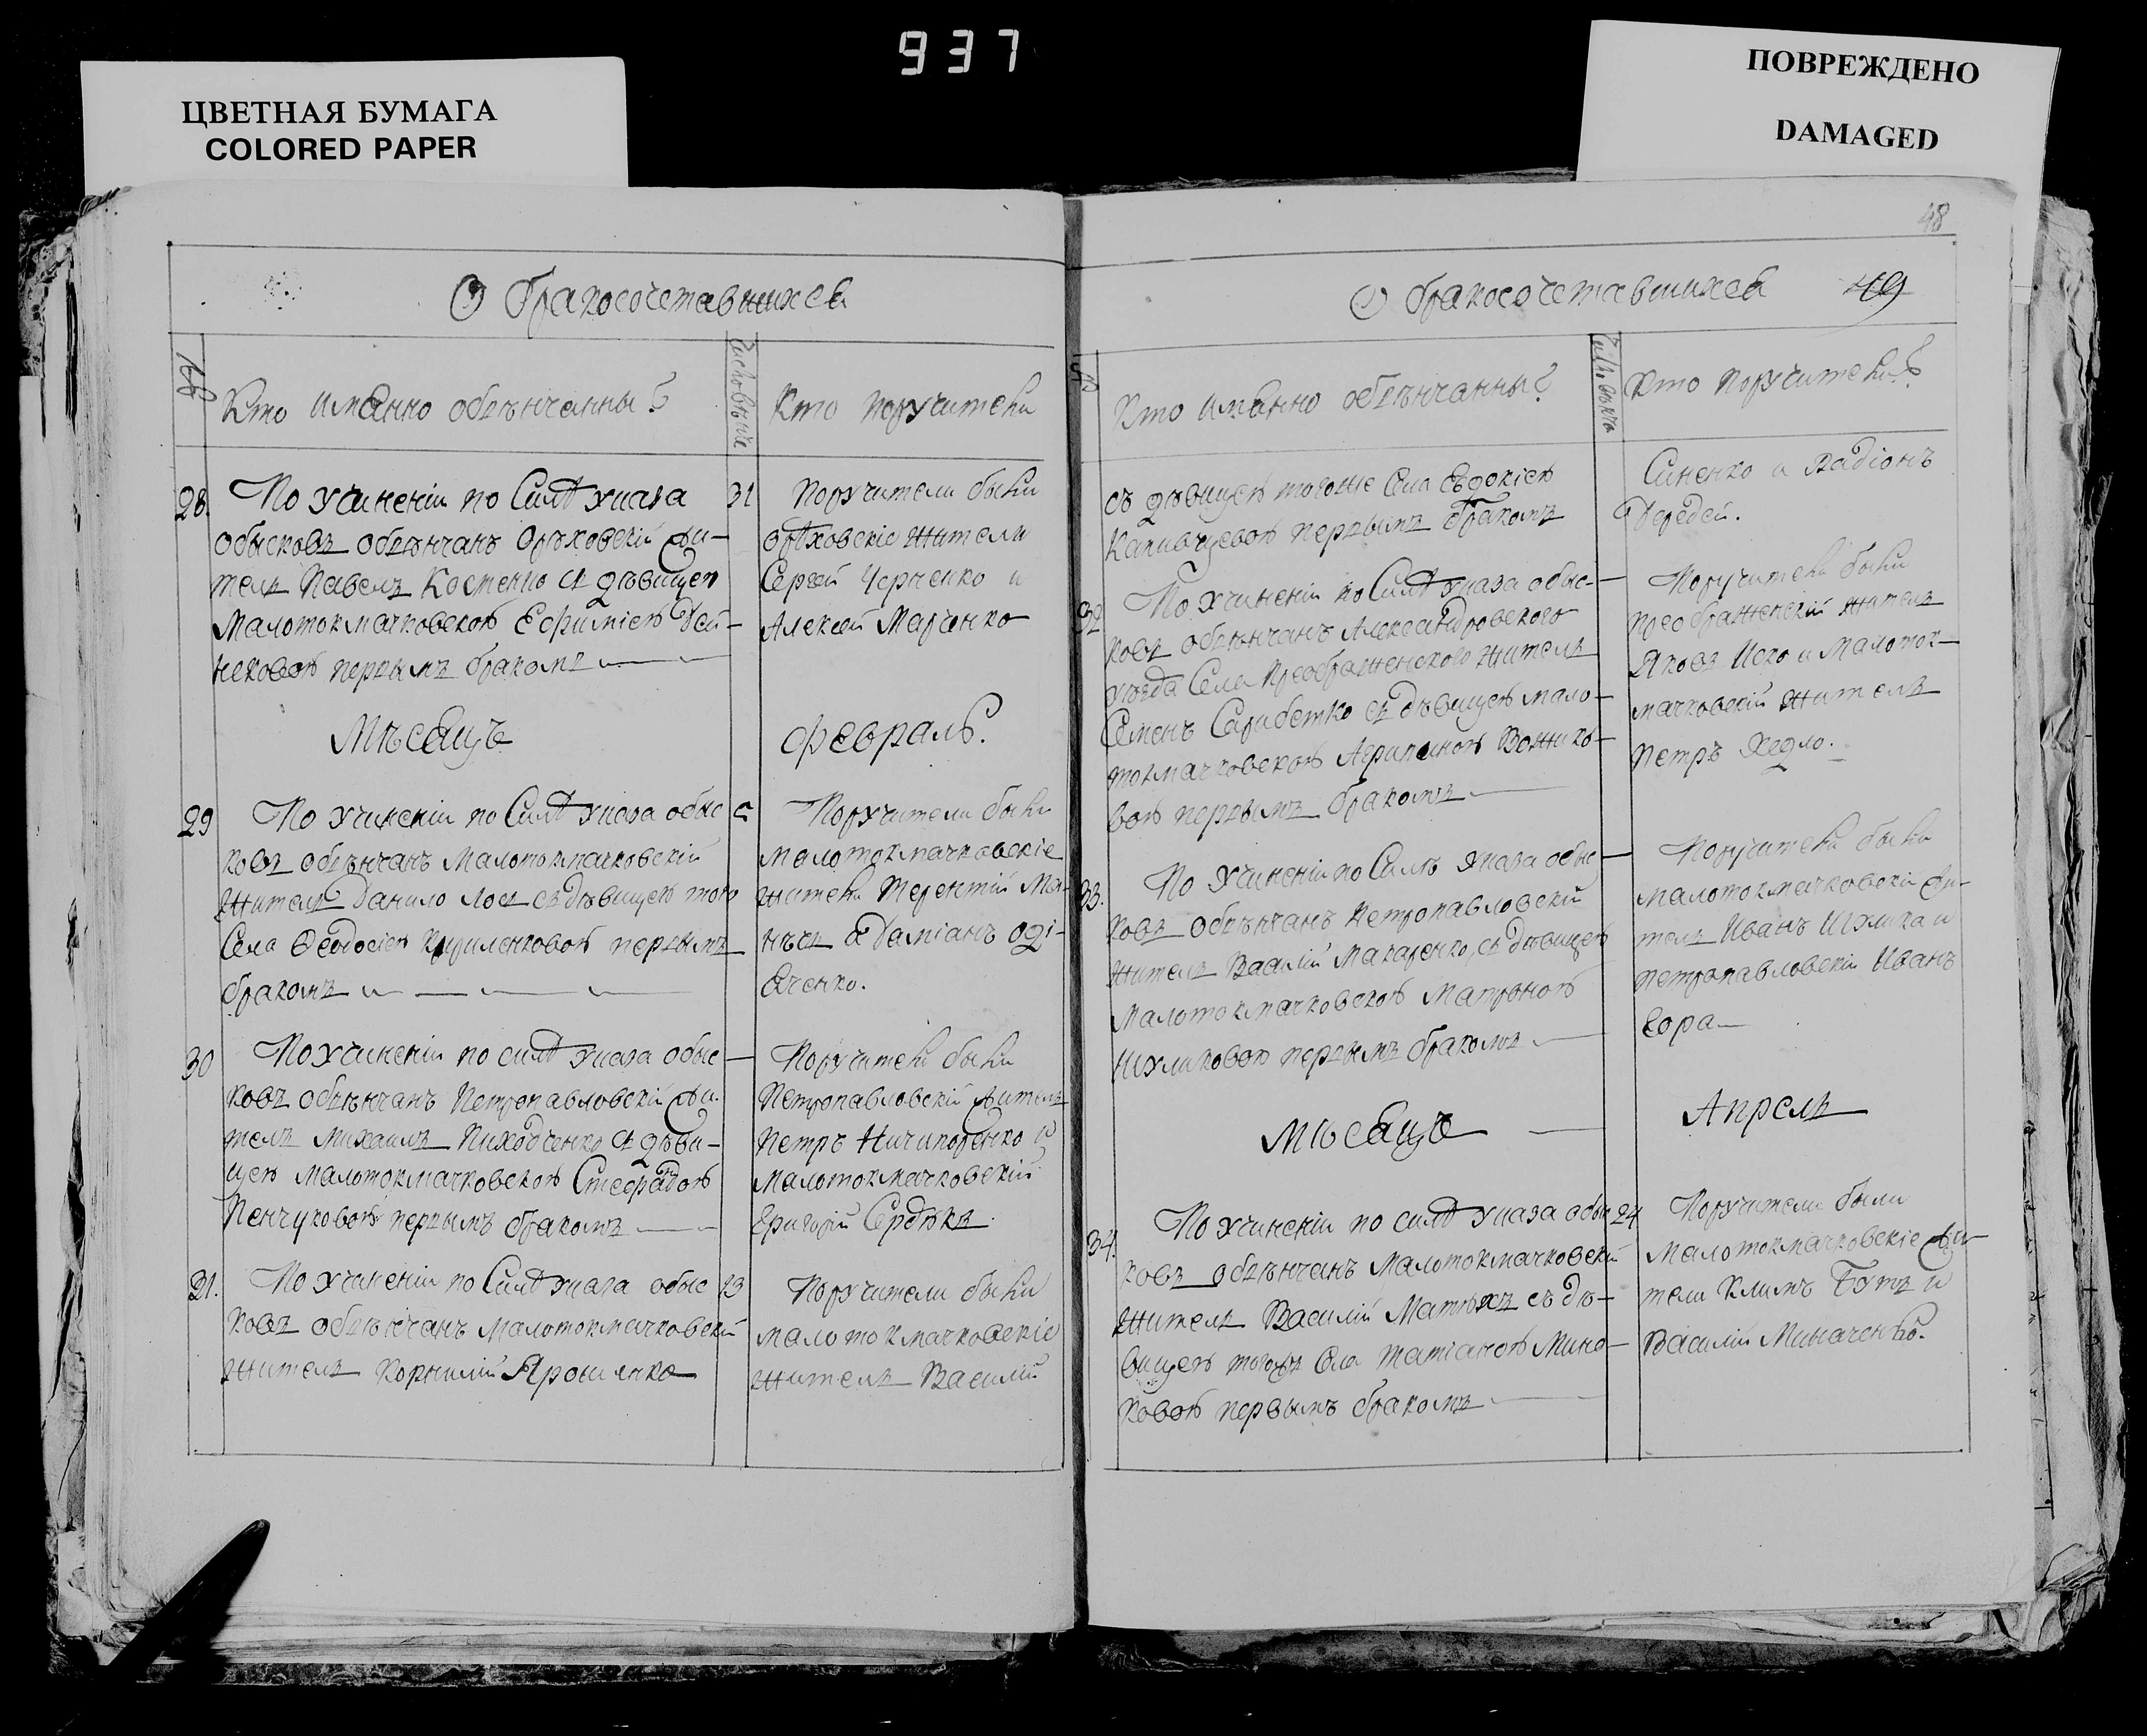 937
ЦВЕТНАЯ БУМАГА
COLORED PAPER
ПОВРЕЖДЕНО
DAMAGED
О бракосочетавшихся
№
Кто имянно обвѣнчанны?
Кто поручители
28. По учиненіи по Силѣ указа
обысковъ обвѣнчанъ Орѣховскій жи-
тель Павелъ Костенко съ дѣвицею
Малотокмачковскою Ефиміею
первымъ бракомъ
31
Поручители были
орѣховскіе жители
Сергей Черненко и
Алексей Марченко
Мѣсяцъ
февраль.
29 По учиненіи по Силѣ указа обыс
ковъ обвѣнчанъ Малотокмачковскій
житель Данило Лось съ дѣвицею того
Села Феодосіею Кириленковою первымъ
бракомъ
5
Поручители были
малотокмачковскіе
жители Терентій
и Даміанъ
30 По учиненіи по силѣ указа обыс-
ковъ обвѣнчанъ Петропавловскій жи-
тель Михаилъ Пиходченко съ дѣви-
цею малотокмачковскою
Пенчуковою первымъ бракомъ
Поручители были
Петропавловскій житель
Петръ Ничипоренко и
малотокмачковскій
Григорій Сердюкъ
31. По учиненіи по Силѣ указа обыс
ковъ обвѣнчанъ малотокмачковскій
житель Корнилій Ярошенко
13
Поручители были
малотокмачковскіе
житель Василій
48
О бракосочетавшихся 49
№
Кто имянно обвѣнчанны?
Кто поручители?
съ дѣвицею тогоже Села Евдокіею
первымъ бракомъ
Синенко и Радіонъ
32 По учиненіи по Силѣ указа обыс-
ковъ обвѣнчанъ Александровского
уѣзда Села Преображенского житель
Семенъ съ дѣвицею мало-
токмачковскою Агрипиною
первымъ бракомъ
Поручители были
преображенскій житель
Яковъ и Малоток-
мачковскій житель
Петръ
33. По учиненіи по Силѣ указа обыс
ковъ обвѣнчанъ Петропавловскій
житель Василій Макаренко, съ дѣвицею
Малотокмачковскою Матроною
Шуликовою первымъ бракомъ
Поручители были
малотокмачковскій жи-
тель Иванъ Шулика и
петропавловскій Иванъ
Мѣсяцъ
Апрель
34. По учиненіи по силѣ указа обыс
ковъ обвѣнчанъ Малотокмачковскій
житель Василій съ дѣ-
вицею тогожъ Села Татіаною Мина-
ковою первымъ бракомъ
24
Поручители были
Малотокмачковскіе жи-
тели Климъ Бутъ и
Василій Миначенко.